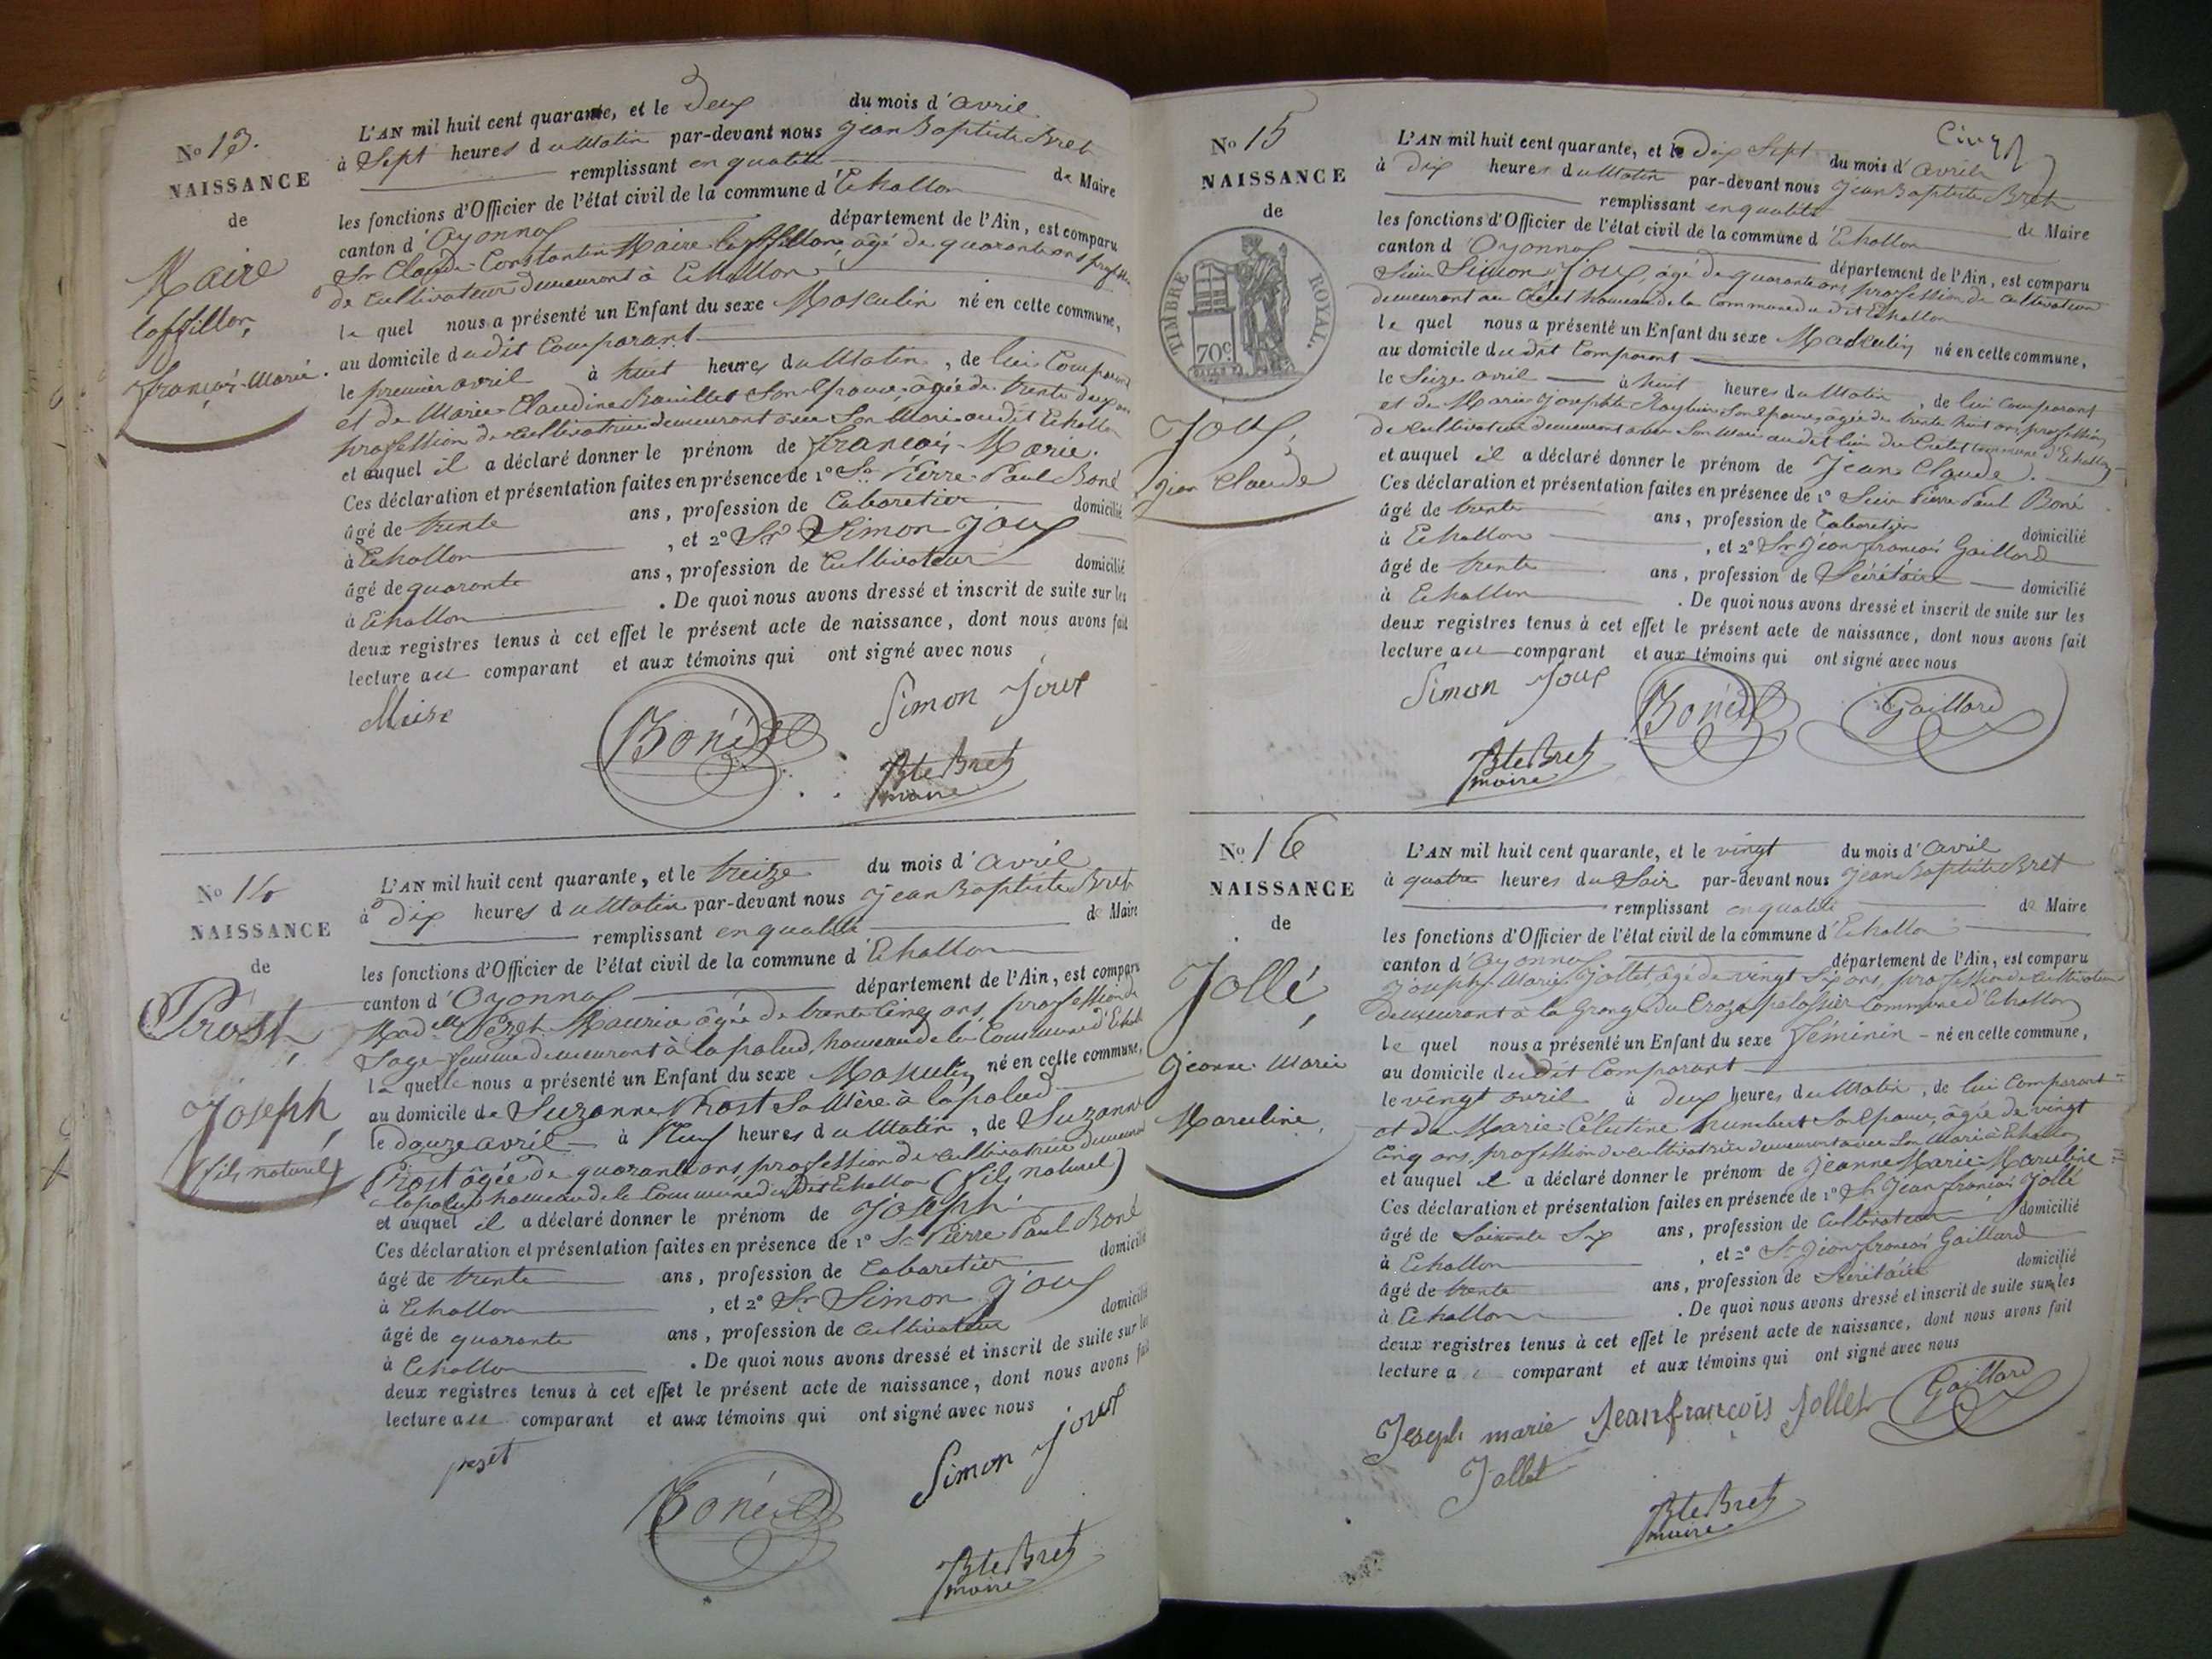 No 13.
NAISSANCE
de
Maire
laffillon,
françois-Marie.
L'AN mil huit cent quarante, et le Deux du mois d'avril
à Sept heures du Matin par-devant nous Jean Baptiste Bret
remplissant en qualité de Maire
les fonctions d'Officier de l'état civil de la commune d'Echallon
canton d'Oyonnax département de l'Ain, est comparu
Sr Claude-Constantin Maire laffillon, âgé de quarante ans profession
de Cultivateur demeurant à Echallon
le quel nous a présenté un Enfant du sexe Masculin né en cette commune,
au domicile dudit Comparant
le premier avril à huit heures du Matin, de lui Comparant
et de Marie-Claudine son Epouse, âgée de trente deux ans
profession de cultivatrice demeurant avec Son Mari audit Echallon
et auquel il a déclaré donner le prénom de françois-Marie.
Ces déclaration et présentation faites en présence de 1° Sr Pierre-Paul Boné
âgé de trente ans, profession de Cabaretier domicilié
à Echallon, et 2° Sr Simon Joux
âgé de quarante ans, profession de Cultivateur domicilié
à Echallon. De quoi nous avons dressé et inscrit de suite sur les
deux registres tenus à cet effet le présent acte de naissance, dont nous avons fait
lecture au comparant et aux témoins qui ont signé avec nous
Maire
Boné
Simon Joux
Bte Bret
maire
No 14
NAISSANCE
de
Prost,
Joseph,
(fils naturel)
L'AN mil huit cent quarante, et le treize du mois d'avril
à Dix heures du Matin par-devant nous Jean Baptiste Bret
remplissant en qualité de Maire
les fonctions d'Officier de l'état civil de la commune d'Echallon
canton d'Oyonnax département de l'Ain, est comparu
Madelle âgée de trente Cinq ans, profession de
Sage-femme demeurant à la palud, hameau de la Commune d'Echallon
laquelle nous a présenté un Enfant du sexe Masculin né en cette commune,
au domicile de Suzanne Prost Sa Mère à la palud
le douze avril à Neuf heures du Matin, de Suzanne
Prost âgée de quarante ans, profession de cultivatrice demeurant
à la palud hameau de la Commune dudit Echallon (fils naturel)
et auquel il a déclaré donner le prénom de Joseph
Ces déclaration et présentation faites en présence de 1° Sr Pierre Paul Boné
âgé de trente ans, profession de Cabaretier domicilié
à Echallon, et 2° Sr Simon Joux
âgé de quarante ans, profession de Cultivateur domicilié
à Echallon. De quoi nous avons dressé et inscrit de suite sur les
deux registres tenus à cet effet le présent acte de naissance, dont nous avons fait
lecture au comparant et aux témoins qui ont signé avec nous
Boné
Simon Joux
Bte Bret
maire
No 15
NAISSANCE
de
TIMBRE ROYAL.
70c
Joux,
Jean Claude
Cinq
L'AN mil huit cent quarante, et le Dix Sept du mois d'avril
à Dix heures du Matin par-devant nous Jean Baptiste Bret
remplissant en qualité de Maire
les fonctions d'Officier de l'état civil de la commune d'Echallon
canton d'Oyonnax département de l'Ain, est comparu
Sieur Simon Joux, âgé de quarante ans profession de Cultivateur
demeurant au Crêtet hameau de la Commune dudit Echallon
le quel nous a présenté un Enfant du sexe Masculin né en cette commune,
au domicile dudit Comparant
le Seize avril à huit heures du Matin, de lui Comparant
et de Marie Josephte son Epouse, âgée de trente huit ans, profession
de cultivateur demeurant avec Son Mari audit lieu du Crêtet commune d'Echallon
et auquel il a déclaré donner le prénom de Jean Claude.
Ces déclaration et présentation faites en présence de 1° Sieur Pierre Paul Boné
âgé de trente ans, profession de Cabaretier domicilié
à Echallon, et 2° Sr Jean françois Gaillard
âgé de trente ans, profession de Sécrétaire domicilié
à Echallon. De quoi nous avons dressé et inscrit de suite sur les
deux registres tenus à cet effet le présent acte de naissance, dont nous avons fait
lecture au comparant et aux témoins qui ont signé avec nous
Simon Joux
Boné
Gaillard
Bte Bret
maire
No 16
NAISSANCE
de
Jollé,
Jeanne Marie
Marceline,
L'AN mil huit cent quarante, et le vingt du mois d'avril
à quatre heures du Soir par-devant nous Jean Baptiste Bret
remplissant en qualité de Maire
les fonctions d'Officier de l'état civil de la commune d'Echallon
canton d'Oyonnax département de l'Ain, est comparu
Joseph-Marie Jollet, âgé de vingt Six ans, profession de Cultivateur
demeurant à la Grange du Commune d'Echallon
le quel nous a présenté un Enfant du sexe féminin né en cette commune,
au domicile dudit Comparant
le vingt avril à deux heures du Matin, de lui Comparant
et de Marie Célestine humbert Son Epouse, âgée de vingt
Cinq ans, profession de cultivatrice demeurant avec Son Mari à Echallon
et auquel il a déclaré donner le prénom de Jeanne Marie-Marceline
Ces déclaration et présentation faites en présence de 1° Sr Jean françois Jollé
âgé de Soixante Six ans, profession de Cultivateur domicilié
à Echallon, et 2° Sr Jean françois Gaillard
âgé de trente ans, profession de Sécrétaire domicilié
à Echallon. De quoi nous avons dressé et inscrit de suite sur les
deux registres tenus à cet effet le présent acte de naissance, dont nous avons fait
lecture a comparant et aux témoins qui ont signé avec nous
Joseph marie Jollet
Jean françois Jollet
Gaillard
Bte Bret
maire